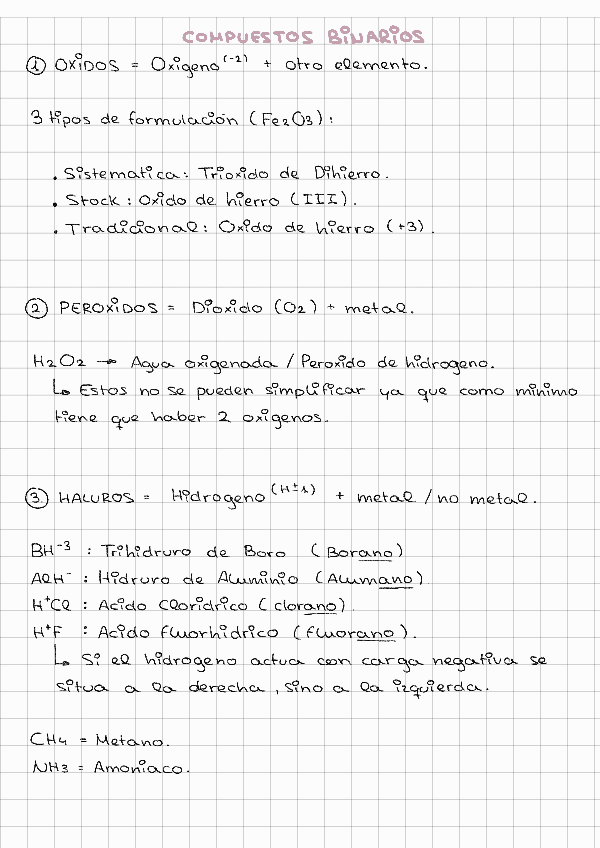 COMPUESTOS BINARIOS
① OXIDOS = Oxigeno⁽⁻²⁾ + otro elemento.
3 tipos de formulación (Fe2O3):
. Sistematica: Trioxido de Dihierro.
. Stock: Oxido de hierro (III).
. Tradicional: Oxido de hierro (+3).
② PEROXIDOS = Dioxido (O2) + metal.
H2O2 → Agua oxigenada / Peroxido de hidrogeno.
↳ Estos no se pueden simplificar ya que como minimo
tiene que haber 2 oxigenos.
③ HALUROS = Hidrogeno (H±1) + metal / no metal.
BH⁻³ : Trihidruro de Boro (Borano)
AlH⁻ : Hidruro de Aluminio (Alumano)
H⁺Cl : Acido Cloridrico (clorano).
H⁺F : Acido fluorhidrico (fluorano).
↳ Si el hidrogeno actua con carga negativa se
situa a la derecha, sino a la izquierda.
CH4 = Metano.
NH3 = Amoniaco.